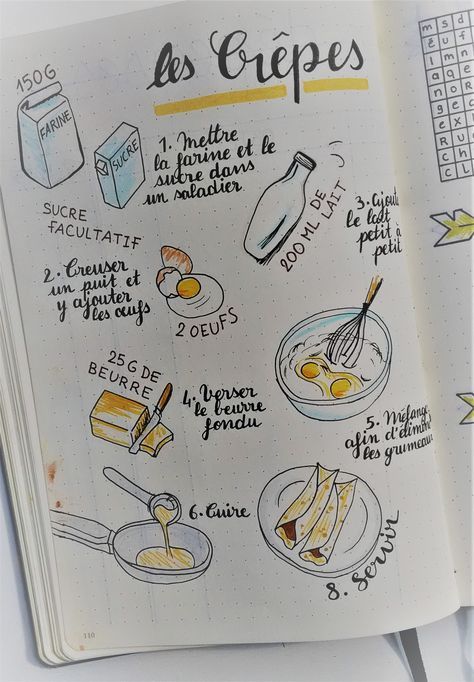 les Crêpes
150G
FARINE
SUCRE
1. Mettre
la farine et le
sucre dans
un saladier
SUCRE
FACULTATIF
200 ML DE
LAIT
3. Ajout
le lait
petit à
petit
2. Creuser
un puit et
y ajouter
les œufs
2 OEUFS
25 G DE
BEURRE
4. Verser
le beurre
fondu
5. Mélang
afin d'élimin
les grumeau
6. Cuire
8. Servir
110